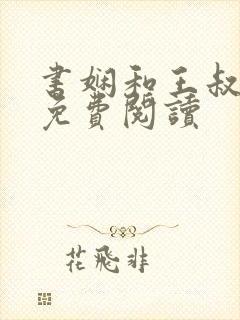 书娴和王叔
免費閱讀
花飛非